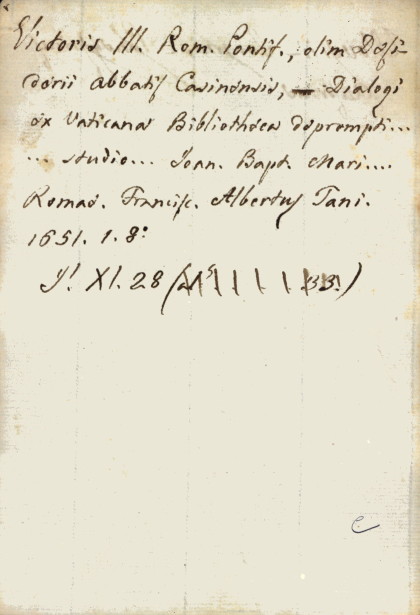 Victoris III. Rom. Pontif., olim Desi-
derii abbatis Casinensis, — Dialogi
ex Vaticana Bibliotheca deprompti...
... studio... Joan. Bapt. Mari....
Romae. Francisc. Albertus Tani.
1651. 1. 8:
J! XI. 28 (